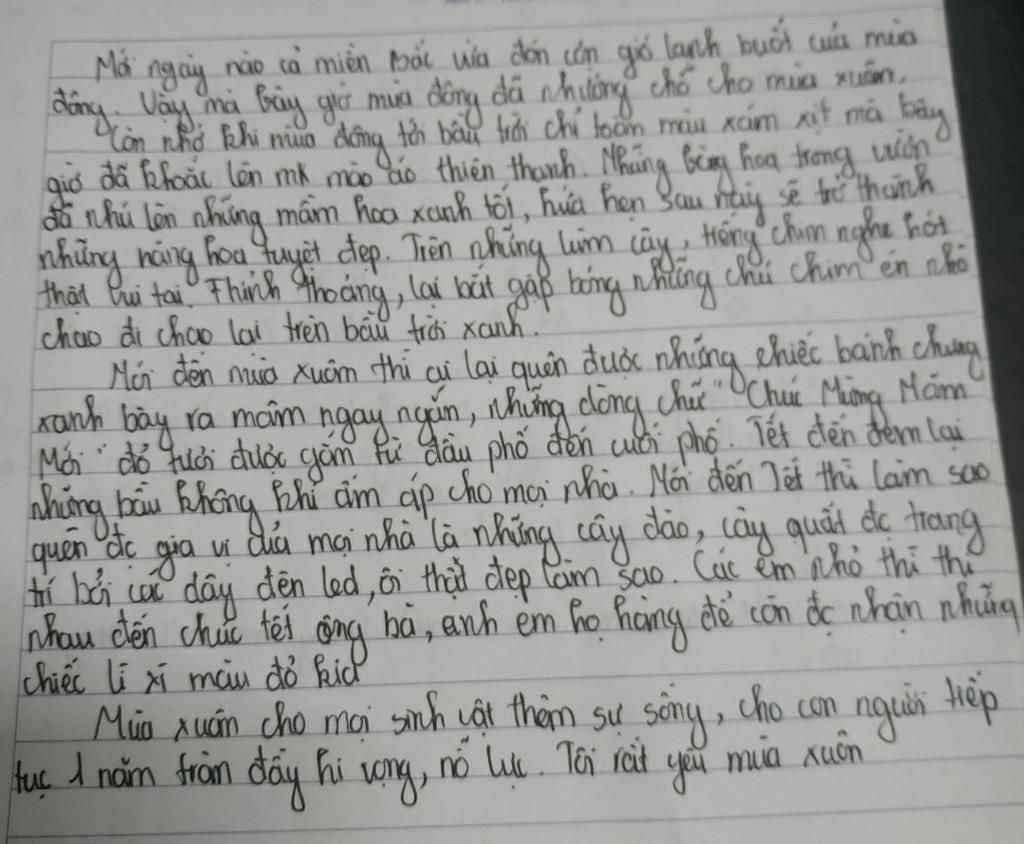 Mới ngày nào cả miền Bắc vừa đón cơn gió lạnh buốt của mùa
đông. Vậy mà bây giờ mùa đông đã nhường chỗ cho mùa xuân.
Còn nhớ khi mùa đông tới bầu trời chỉ toàn màu xám xịt mà bây
giờ đã khoác lên mk mào áo thiên thanh. Những bông hoa trong vườn
đã nhú lên những mầm hoa xanh tốt, hứa hẹn sau này sẽ trở thành
những nàng hoa tuyệt đẹp. Trên những lùm cây, tiếng chim nghe hót
thật vui tai. Thỉnh thoảng, lại bắt gặp bóng những chú chim én nhỏ
chao đi chao lại trên bầu trời xanh.
Mới đến mùa xuân thì ai lại quên được những chiếc bánh chưng
xanh bày ra mâm ngay ngắn, những dòng chữ "Chúc Mừng Năm
Mới" đỏ tươi được gắm từ đầu phố đến cuối phố. Tết đến đem lại
những bầu không khí ấm áp cho mọi nhà. Nói đến Tết thì làm sao
quên đc gia vị của mọi nhà là những cây đào, cây quất đc trang
trí bởi các dây đèn led, ôi thật đẹp làm sao. Các em nhỏ thì thi
nhau đến chúc tết ông bà, anh em họ hàng để còn đc nhận những
chiếc lì xì màu đỏ
Mùa xuân cho mọi sinh vật thêm sự sống, cho con người tiếp
tục 1 năm tràn đầy hi vọng, nỗ lực. Tôi rất yêu mùa xuân